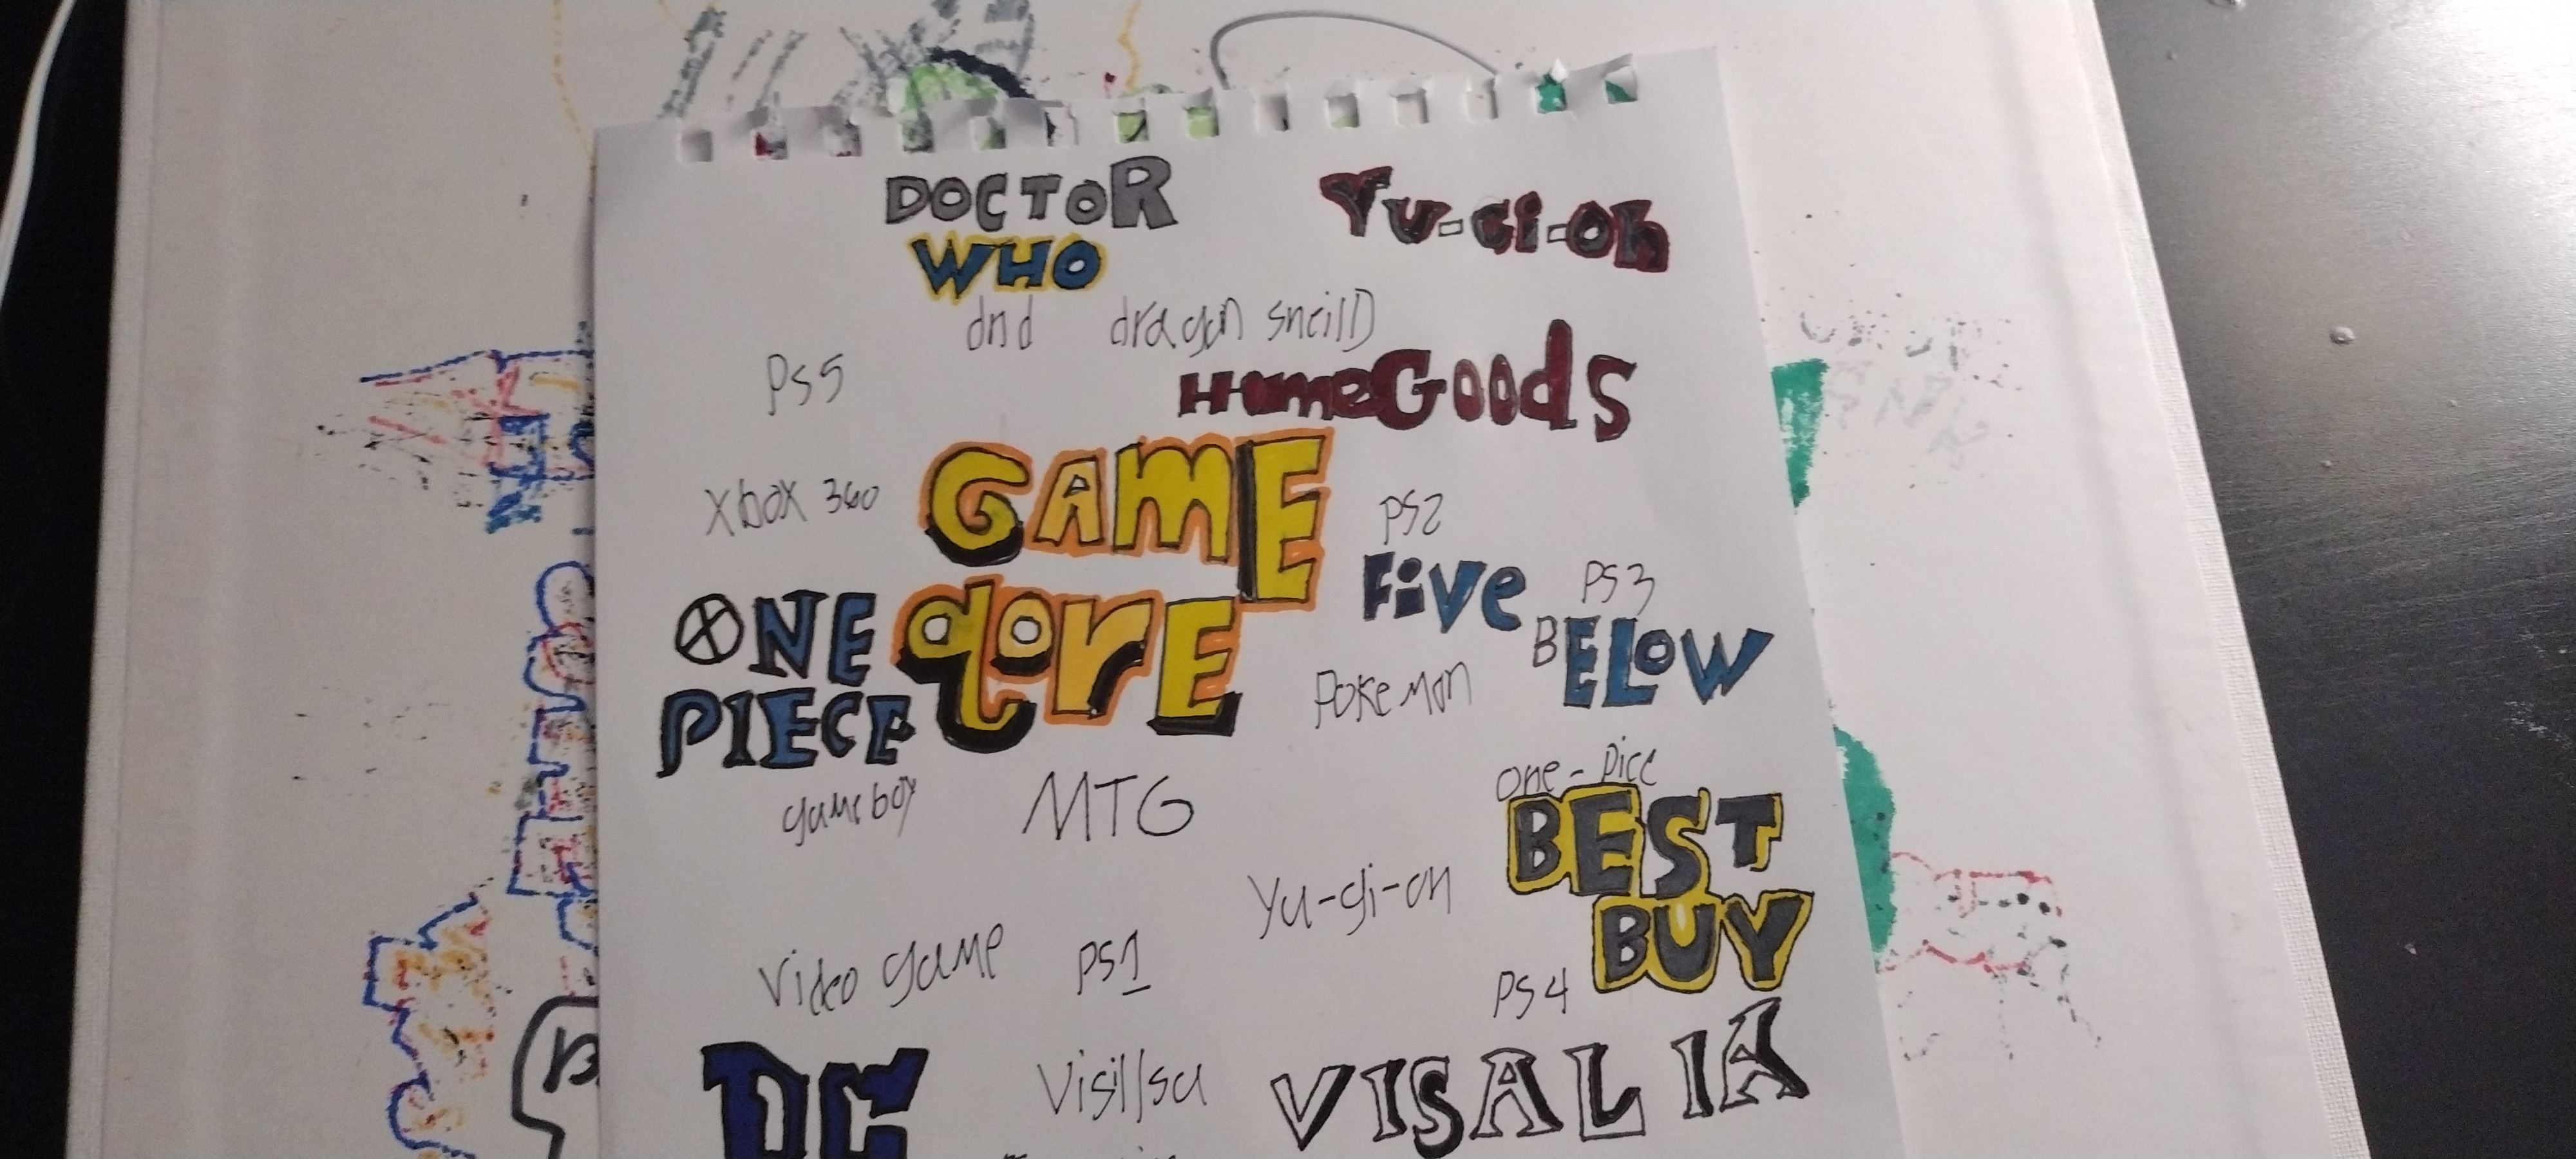 DOCTOR
WHO
Yu-Gi-Oh
dnd dragon sneilD
PS5
HomeGoods
GAME
Xbox 360
PS2
Five
PS3
BELOW
ONE
PIECE
qorE
Pokemon
gameboy
MTG
one-pice
BEST
BUY
Yu-gi-oh
Video game
PS1
PS4
DC
Visilsa
VISALIA